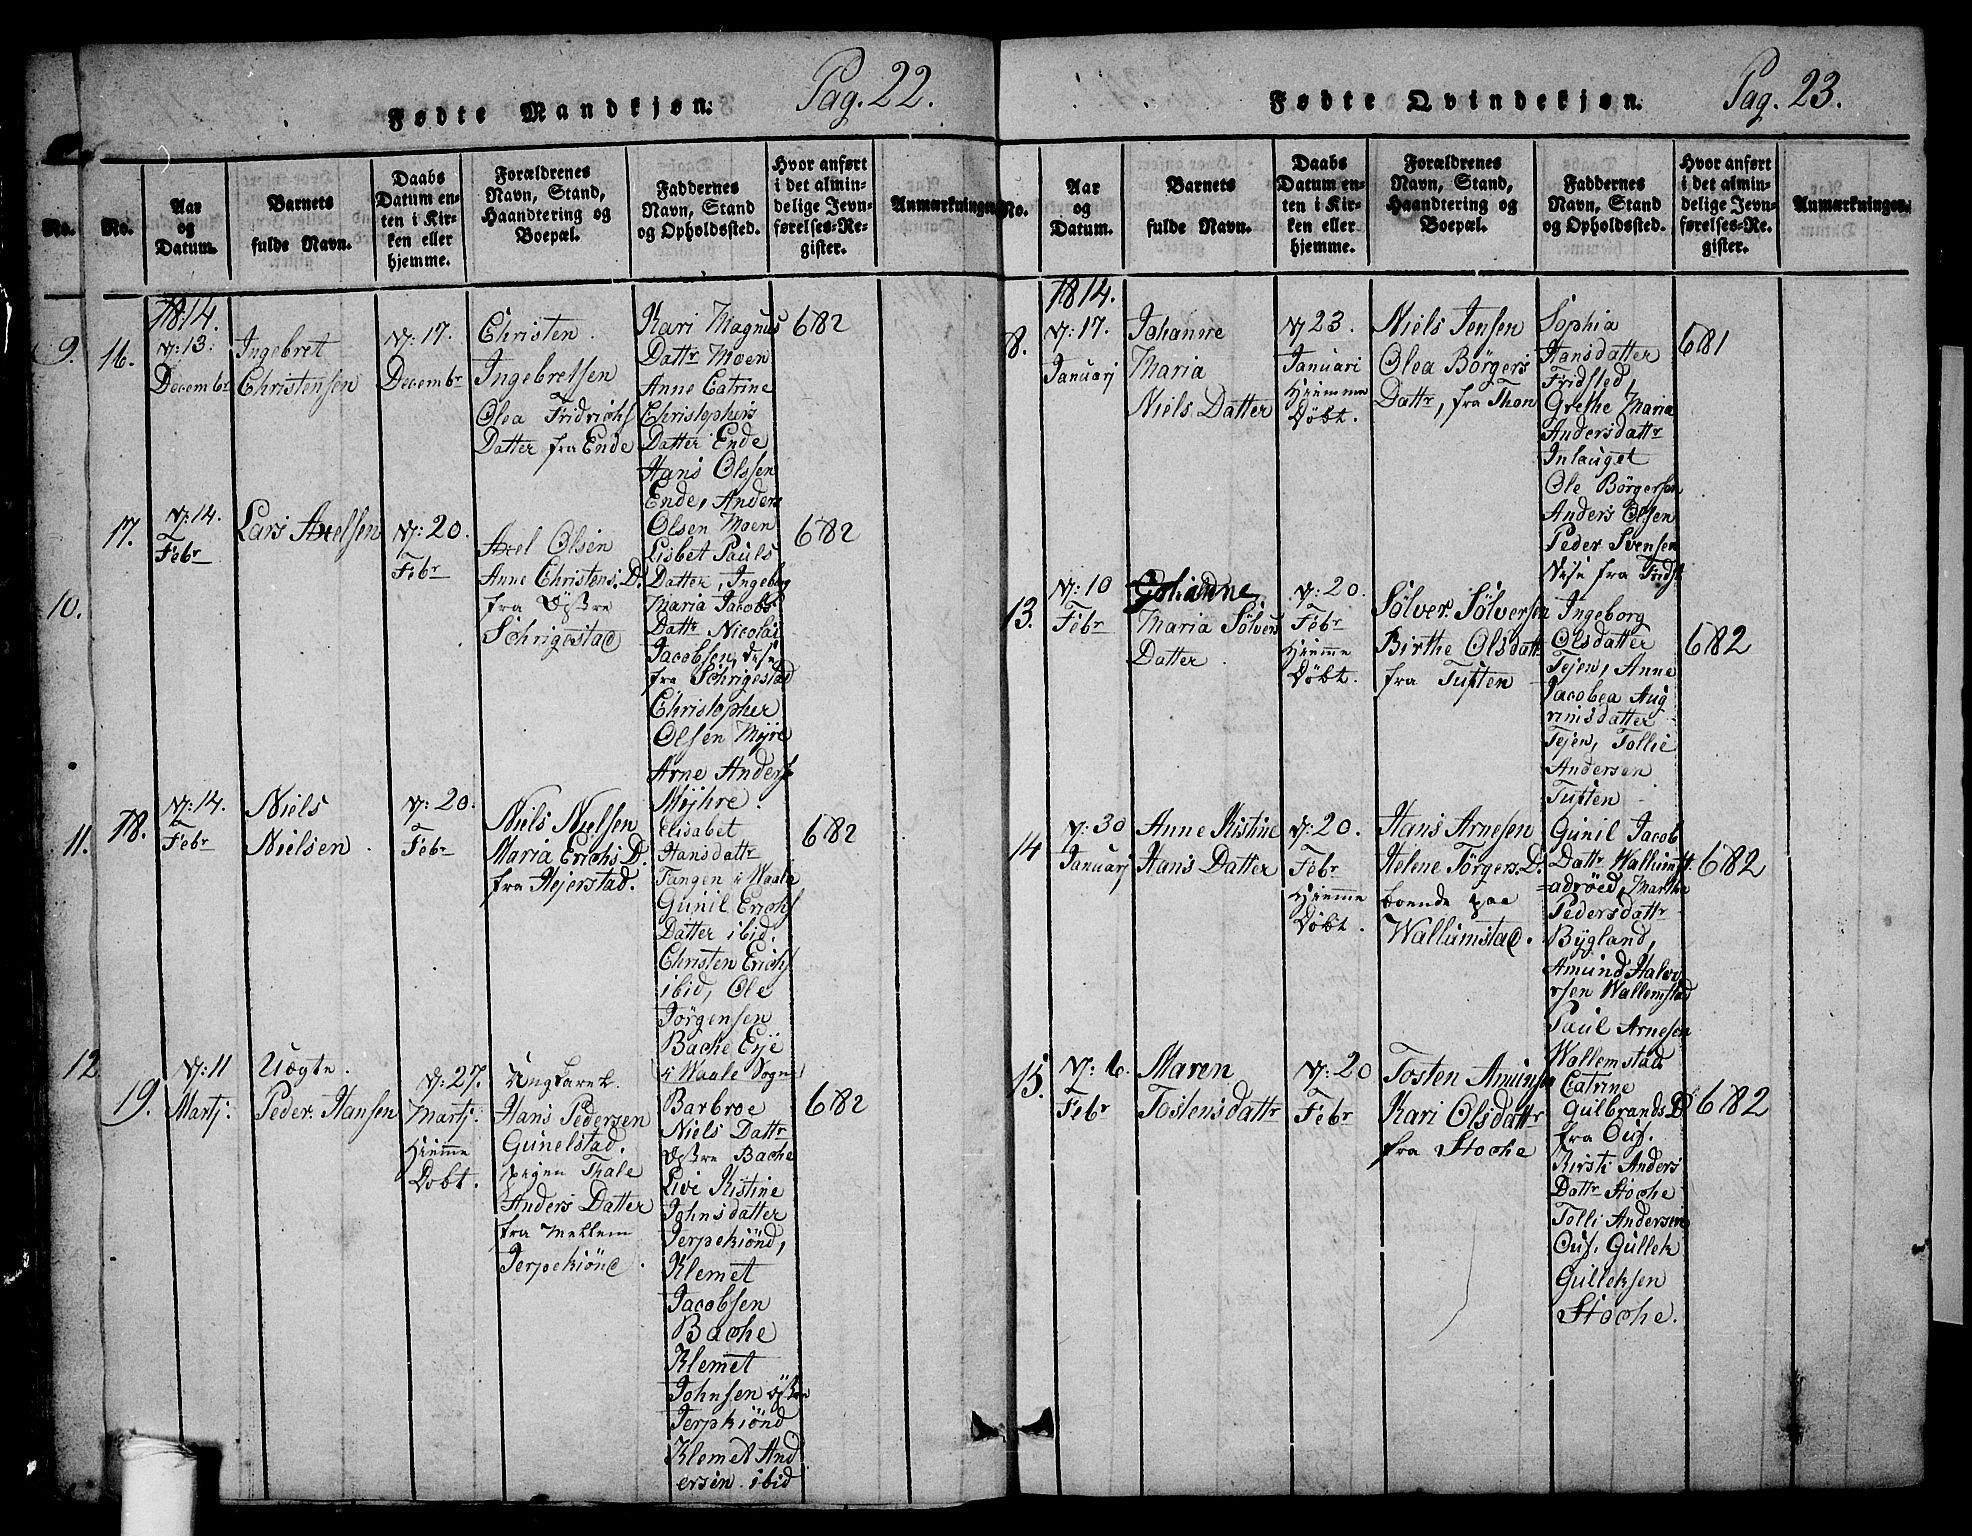 Pag. 22.
Fødte Mandkjøn.
No.
No.
Aar
og
Datum.
Barnets
fulde Navn.
Daabs
Datum en-
ten i Kir-
ken eller
hjemme.
Forældrenes
Navn, Stand,
Haandtering og
Boepæl.
Faddernes
Navn, Stand
og Opholdssted.
Hvor anført
i det almin-
delige Jevn-
førelses-Re-
gister.
Anmærkninger
9.
16.
1814.
N: 13:
Decembr
Ingebret
Christensen
N: 17.
Decembr
Christen
Ingebretsen
Olea Fridrichs
Datter fra Ende
Kari Magnus
Dattr Moen
Anne Catrine
Christophers
Datter Ende
Hans Olssen
Ende, Anders
Olsen Moen
682
17.
N: 14.
Febr
Lars Axelsen
N: 20.
Febr
Axel Olsen
Anne Christens. D.
fra Østre
Schrigestad
Lisbet Pauls
Datter, Ingeborg
Maria Jacobs
Dattr Nicolai
Jacobsen, dise
fra Schrigestad
Christopher
Olsen Myre
Arne Anders
Mijhre.
682
10.
11.
18.
N: 14.
Febr
Niels
Nielsen.
N: 20.
Febr
Niels Nielsen
Maria Erichs D.
fra Hejerstad.
Elisabet
Hansdattr
Tangen i Waale
Gunil Erichs
Datter ibid.
Christen Erichs
ibid, Ole
Jörgensen
Bache Erje
i Waale Sogn
682
12
19.
N: 11
Martj.
Uægte.
Peder Hansen
N: 27.
Martj.
Hiemme
Dobt.
Ungkarel.
Hans Pedersen
Gunelstad.
pigen Thale
Anders Datter
fra Mellem
Jerpekiönd.
Barbroe
Niels Dattr
Østre Bache
Live Kistine
Johnsdatter
Jerpekiönd,
Klemet
Jacobsen
Bache
Klemet
Johnsen Østre
Jerpkiönd
Klemet And
ersen. ibid
682
Pag. 23.
Fødte Qvindekjøn.
No.
Aar
og
Datum.
Barnets
fulde Navn.
Daabs
Datum en-
ten i Kir-
ken eller
hjemme.
Forældrenes
Navn, Stand,
Haandtering og
Boepæl.
Faddernes
Navn, Stand
og Opholdssted.
Hvor anført
i det almin-
delige Jevn-
førelses-Re-
gister.
Anmærkninger.
8.
1814.
N: 17.
Januarj
Johanne
Maria
Niels Datter
N 23.
Januari
Hiemme
Döbt.
Niels Jensen
Olea Börgers
Dattr, fra Thon
Sophia
Hansdatter
Fridsted,
Grethe Maria
Andersdattr
Inlauget
Ole Börgersen
Anders Olsen
Peder Svensen
dise fra Fridst
681
13.
N: 10
Febr
Johanne
Maria Sölvers
Datter.
N: 20.
Febr
Hiemme
Döbt.
Sölver Sölversen
Birthe Olsdattr
fra Tuften
Ingeborg
Olsdatter
Tejen, Anne
Jacobea Aug
rimsdatter
Tejen, Tollie
Andersen
Tuften
682
14
N: 30
Januarj
Anne Kistine
Hans Datter
N: 20.
Febr
Hiemme
Döbt.
Hans Arnesen
Helene Törgers. D.
boende paa
Wallumstad.
Gunil Jacob
Dattr Wallumst
adröed, Marthe
Pedersdattr
Bygland,
Amund Halvo
rsen Wallemstad
Paul Arnesen
Wallemstad
682
15.
N: 6.
Febr
Maren
Tostensdattr
N: 20
Febr
Tosten Amunsen
Kari Olsdattr
fra Stoche
Catrine
Gulbrands D
fra Ous.
Kirsti Anders
Dattr Stoche
Tolli Andersen
Ous. Gullek
Gulleksen
Stoche.
682